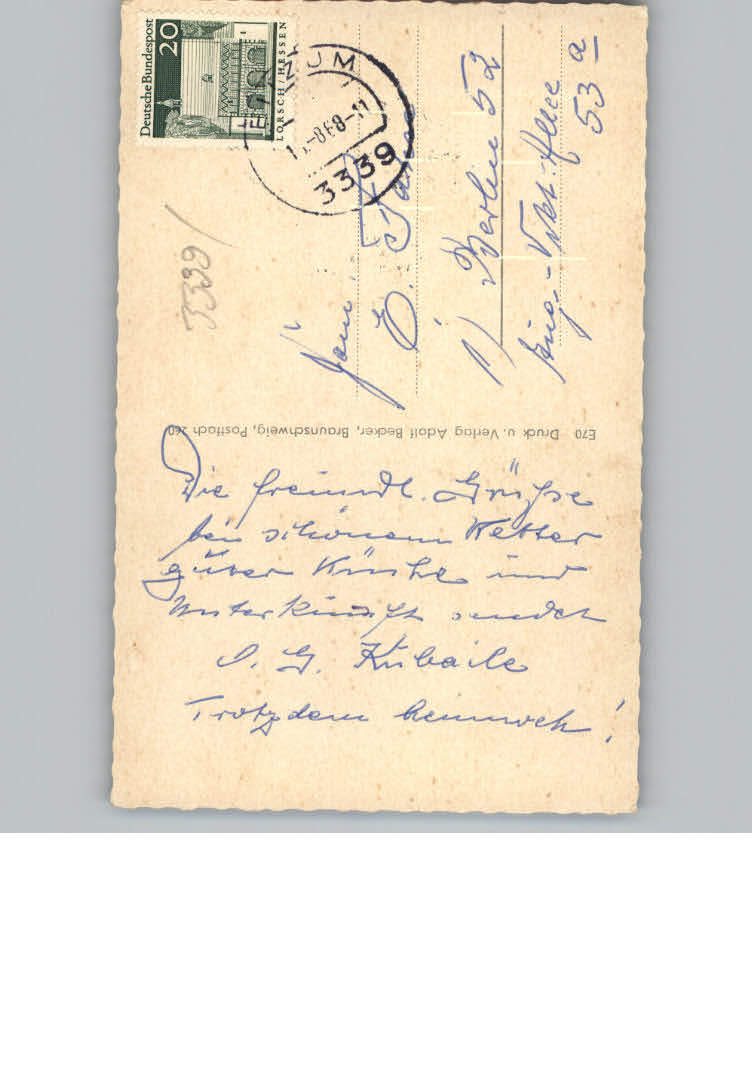 Deutsche Bundespost
20
LORSCH/HESSEN
-8.68-11
3339
3339/
E.
1) Berlin 52
53 a
E70 Druck u. Verlag Adolf Becker, Braunschweig, Postfach 260
Die freundl. Grüße
bei schönem Wetter
guter Küche und
Unterkunft sendet
G. Kubaile
Trotzdem heimweh!